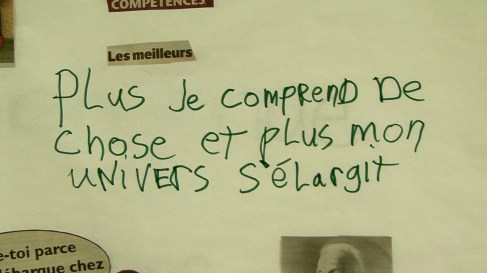 COMPÉTENCES
Les meilleurs
PLUS Je COMPREND De
chose et plus mon
UNIVERS S'ÉLargit
e-toi parce
débarque chez